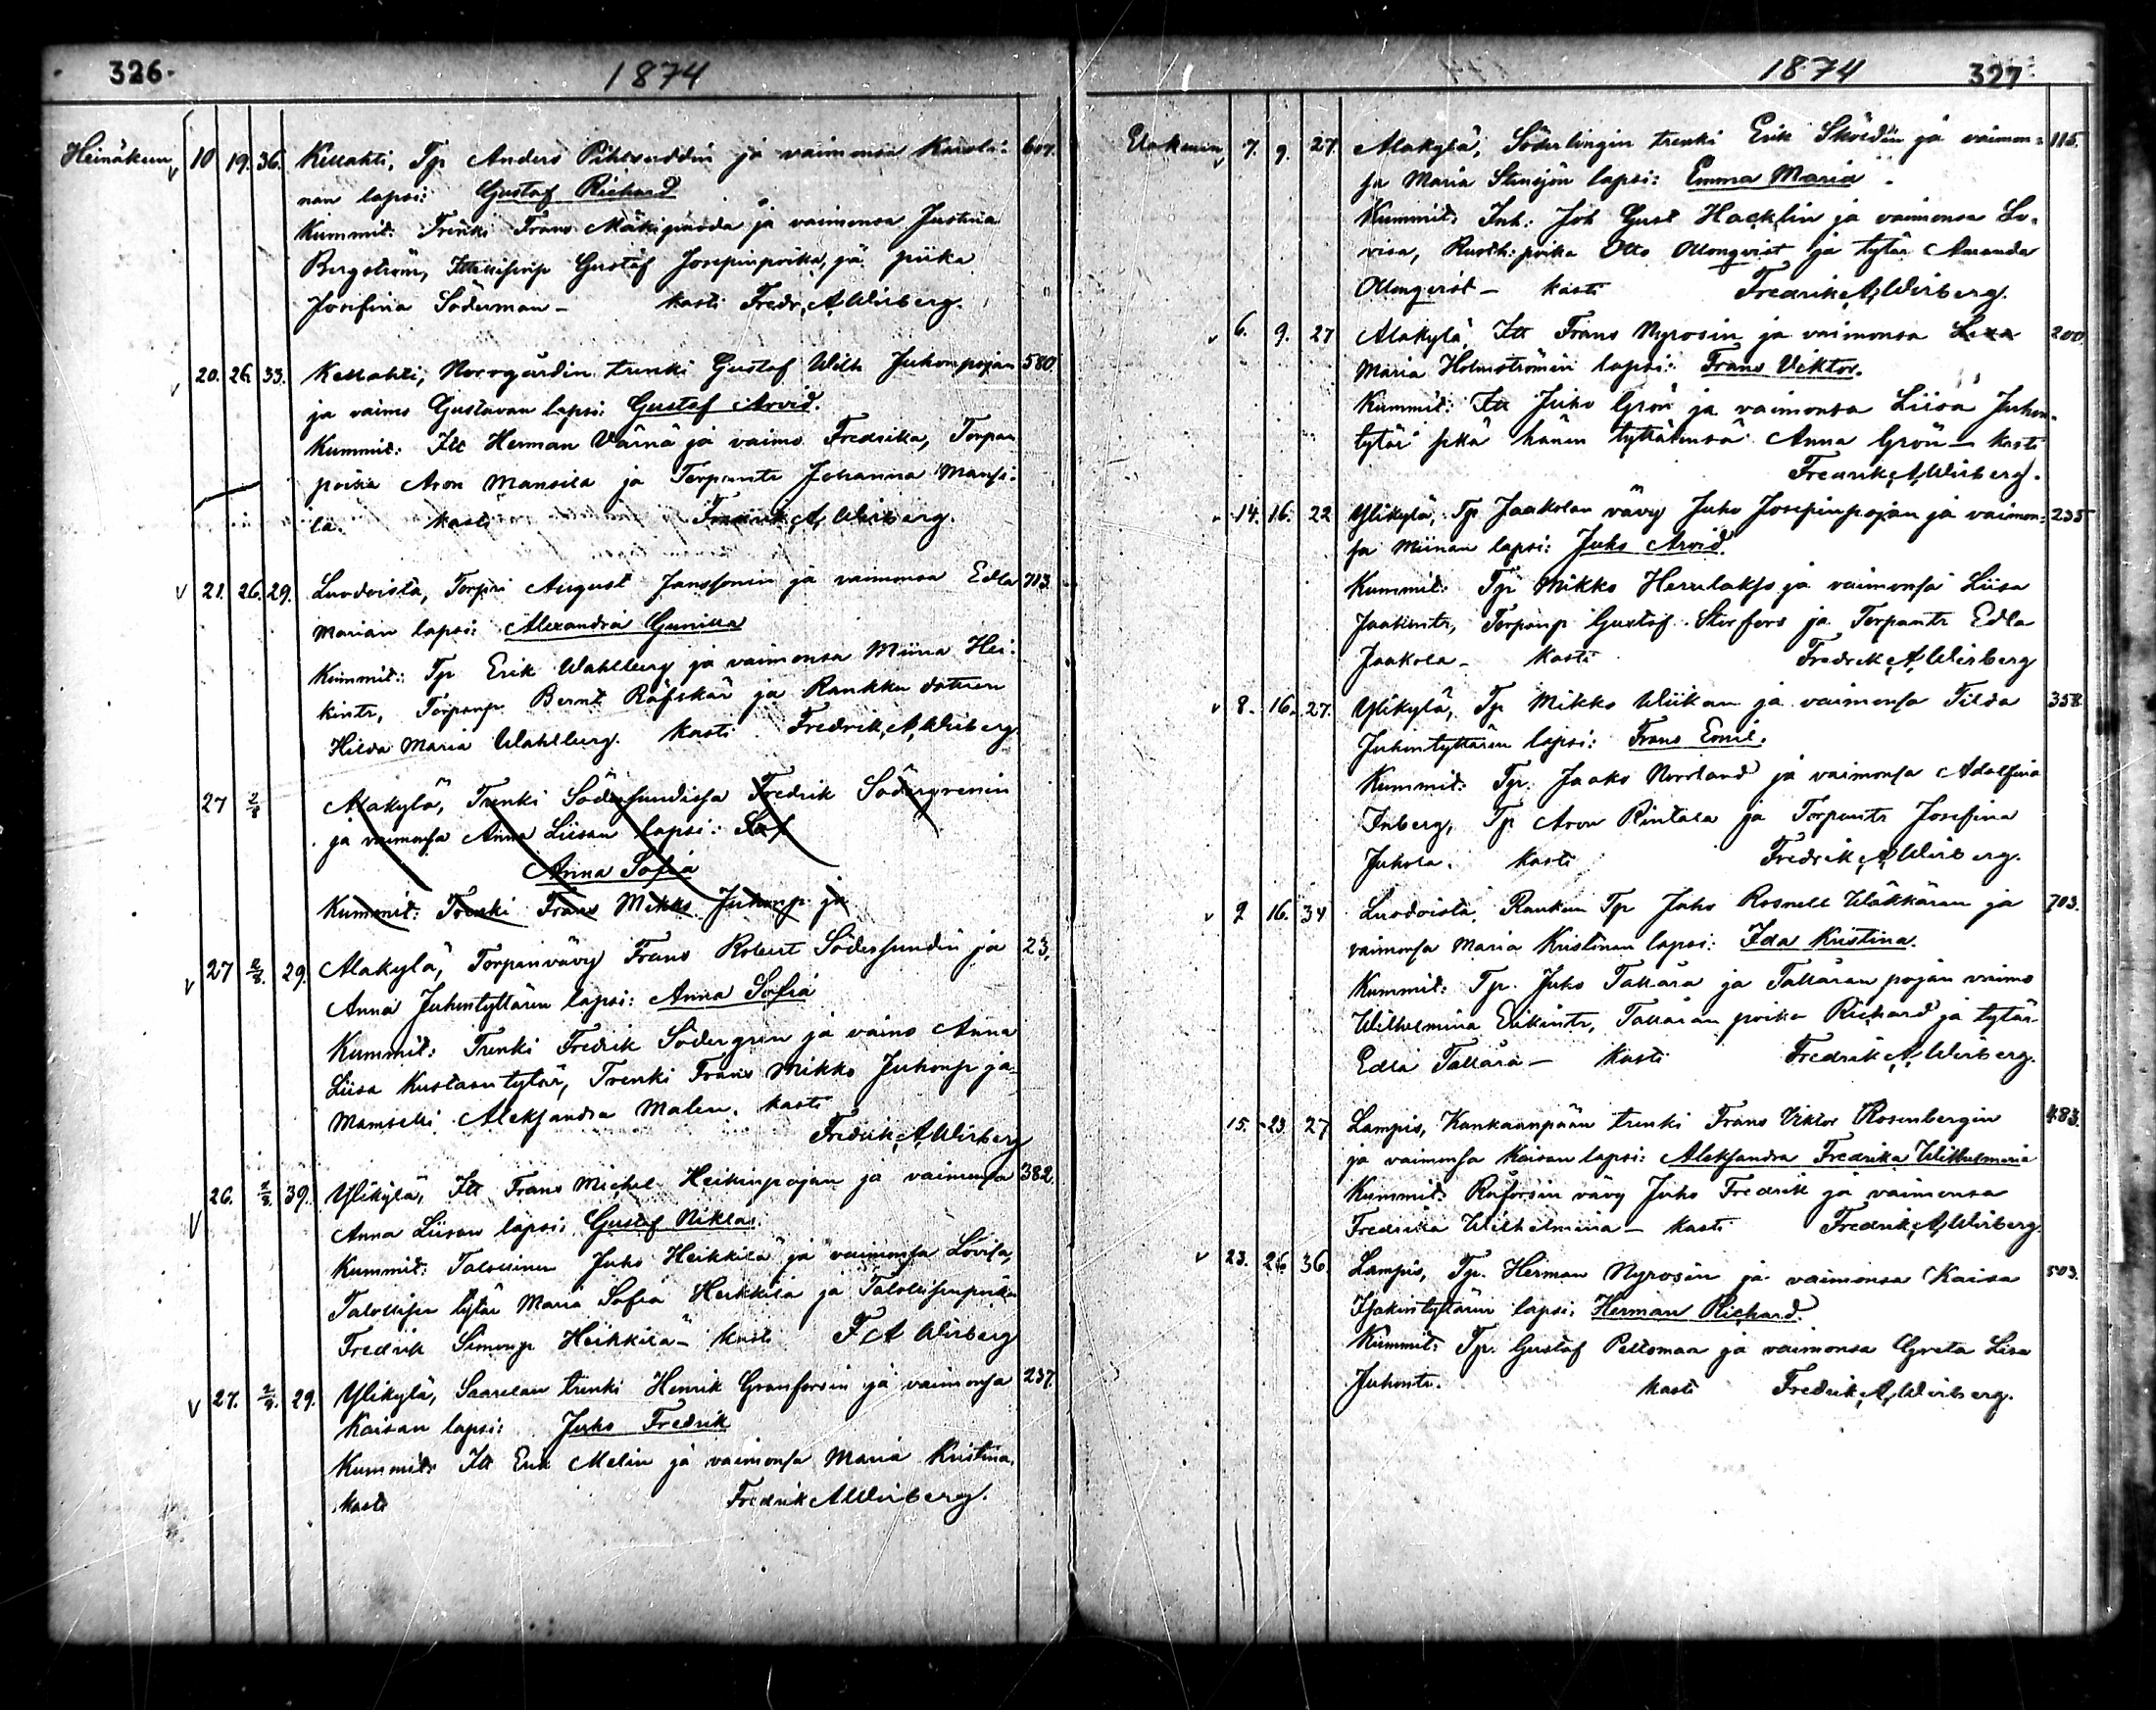 326.
1874
Heinäkuun 10 19. 36. Kellahti, Tp Anders Pihlruddin ja vaimonsa Karoli- 607.
nan lapsi: Gustaf Richard
Kummit: Trenki Frans Mäki ja vaimonsa Justina
Bergström, Gustaf Josepinpoika, ja piika
Josefina Söderman – kasti Fredr. A. Wirberg.
20. 26. 33. Kellahti, Norrgårdin trenki Gustaf Wilh Juhonpojan 580
ja vaimo Gustavan lapsi: Gustaf Arvid.
Kummit: Itt Herman Värnä ja vaimo Fredrika, Torpan
poika Aron Mansila ja Torpantr Johanna Mansi-
la. kasti Fredrik A. Wirberg.
21. 26. 29. Luodoista, Torpri August Janssonin ja vaimonsa Edla 713.
Marian lapsi: Alexandra Gunilla
Kummit: Tp Erik Wahlberg ja vaimonsa Miina Hei-
kintr, Torpanp. Bernt Räfskär ja Rankku
Hilda Maria Wahlberg. kasti Fredrik A. Wirberg.
27 2/8 Alakylä, Trenki Södersundissa Fredrik Södergrenin
ja vaimonsa Anna Liisan lapsi: Sof
Anna Sofia
Kummit: Trenki Frans Mikko Juhonp. ja
27 2/8. 29. Alakylä, Torpanvävy Frans Robert Södersundin ja 23.
Anna Juhontyttären lapsi: Anna Sofia
Kummit: Trenki Fredrik Södergren ja vaimo Anna
Liisa Kustaantytär, Trenki Frans Mikko Juhonp ja
Mamselli Aleksandra Malen. kasti
Fredrik A. Wirberg
26. 2/8. 39. Ylikylä, Itt Frans Michel Heikinpojan ja vaimonsa 382.
Anna Liisan lapsi: Gustaf Niklas.
Kummit: Talollinen Juho Heikkilä ja vaimonsa Lovisa,
Talollisen tytär Maria Sofia Heikkilä ja Talollisenpoika
Fredrik Simonp Heikkilä – kasti F A Wirberg
27. 2/8. 29. Ylikylä, Saarelan trenki Henrik Granforsin ja vaimonsa 237.
Kaisan lapsi: Juho Fredrik
Kummit: Itt Erik Melin ja vaimonsa Maria Kristina.
kasti Fredrik A Wirberg.
1874 327
Elokuun 7. 9. 27. Alakylä, Söderlingin trenki Erik Sköldin ja vaimon- 115.
sa Maria Stensjön lapsi: Emma Maria.
Kummit: Inh: Joh Gust Hacklin ja vaimonsa Lo-
visa, Ruoth: poika Otto Ollonqvist ja tytär Amanda
Ollonqvist – kasti Fredrik A. Wirberg.
6. 9. 27 Alakylä, Itt Frans Nyrosin ja vaimonsa Liisa 200.
Maria Holmströmin lapsi: Frans Viktor.
Kummit: Itt Juho Grön ja vaimonsa Liisa Juhon-
tytär sekä hänen tyttärensä Anna Grön – kasti
Fredrik A. Wirberg.
14. 16. 22 Ylikylä, Tp Jaakolan vävy Juho Josepinpojan ja vaimon- 235
sa Miinan lapsi: Juho Arvid
Kummit: Tp Mikko Herrulakso ja vaimonsa Liisa
Jaakintr, Torpanp Gustaf Storfors ja Torpantr Edla
Jaakola – kasti Fredrik A. Wirberg
8. 16. 27. Ylikylä, Tp Mikko Wiikan ja vaimonsa Tilda 358.
Juhontyttären lapsi: Frans Emil.
Kummit: Tp. Jaako Norrland ja vaimonsa Adolfina
Inberg, Tp Aron Rintala ja Torpantr Josefina
Juhola. kasti Fredrik A Wirberg.
9 16. 34 Luodoista, Rankun Tp Juho Rosnell Wäkkärän ja 703.
vaimonsa Maria Kristinan lapsi: Ida Kristina.
Kummit: Tp. Juho Tallara ja Tallaran pojan vaimo
Wilhelmina Erkintr, Tallaran poika Richard ja tytär
Edla Tallara – kasti Fredrik A, Wirberg.
15. 23. 27 Lampis, Kankaanpään trenki Frans Viktor Rosenbergin 483.
ja vaimonsa Kaisan lapsi: Aleksandra Fredrika Wilhelmina
Kummit: Råforsin vävy Juho Fredrik ja vaimonsa
Fredrika Wilhelmina – kasti Fredrik A, Wirberg.
23. 26 36. Lampis, Tp. Herman Nyrosin ja vaimonsa Kaisa 503.
Isakintyttären lapsi: Herman Richard.
Kummit: Tp. Gustaf Peltoman ja vaimonsa Greta Lisa
Juhontr. kasti Fredrik A, Wirberg.